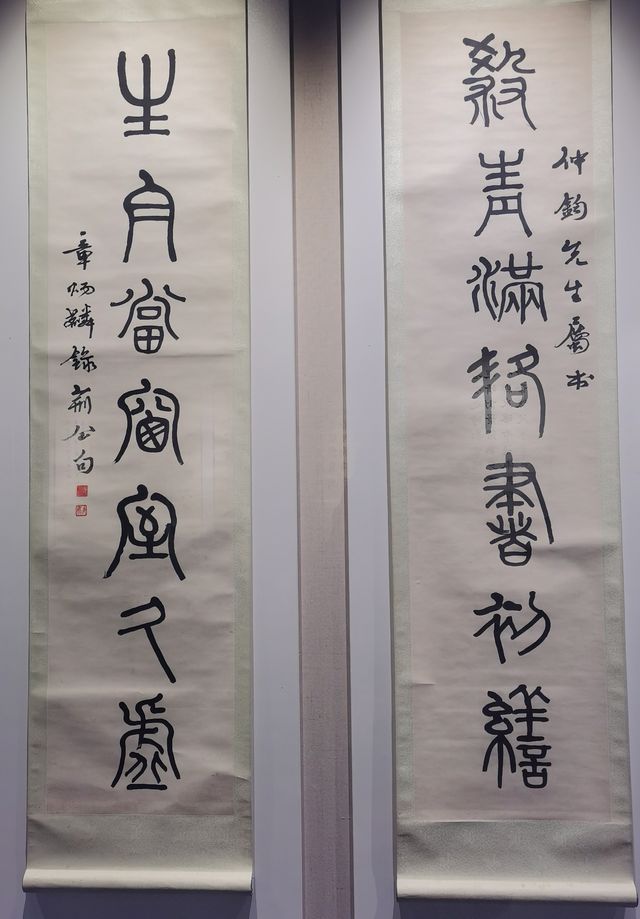 仲鈞先生屬書
殺青滿格書初繕
生白當窗室久虛
章炳麟錄荊公句